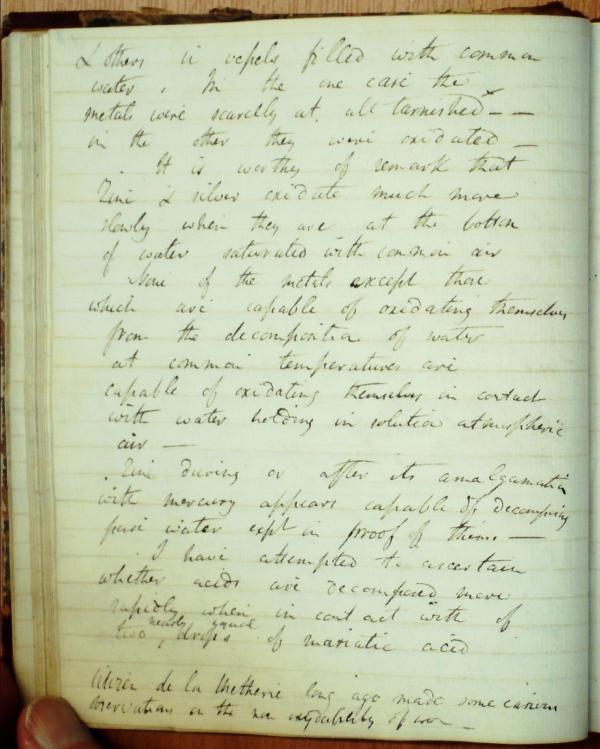 & others in vessels filled with common
water. In the one case the
metals were scarcely at all tarnished – –
in the other they were oxidated –
It is worthy of remark that
Zinc & silver oxidate much more
slowly when they are at the bottom
of water saturated with common air
None of the metals except those
which are capable of oxidating themselves
from the decomposition of water
at common temperatures are
capable of oxidating themselves in contact
with water holding in solution atmospheric
air —
Zinc during or after its amalgamation
with mercury appears capable of decomposing
pure water expt in proof of this. —
I have attempted to ascertain
whether acids are decomposed more
rapidly when in contact with of
two nearly equal drops of muriatic acid
de la Metherie long ago made some curious
observations on the non oxydability of iron –